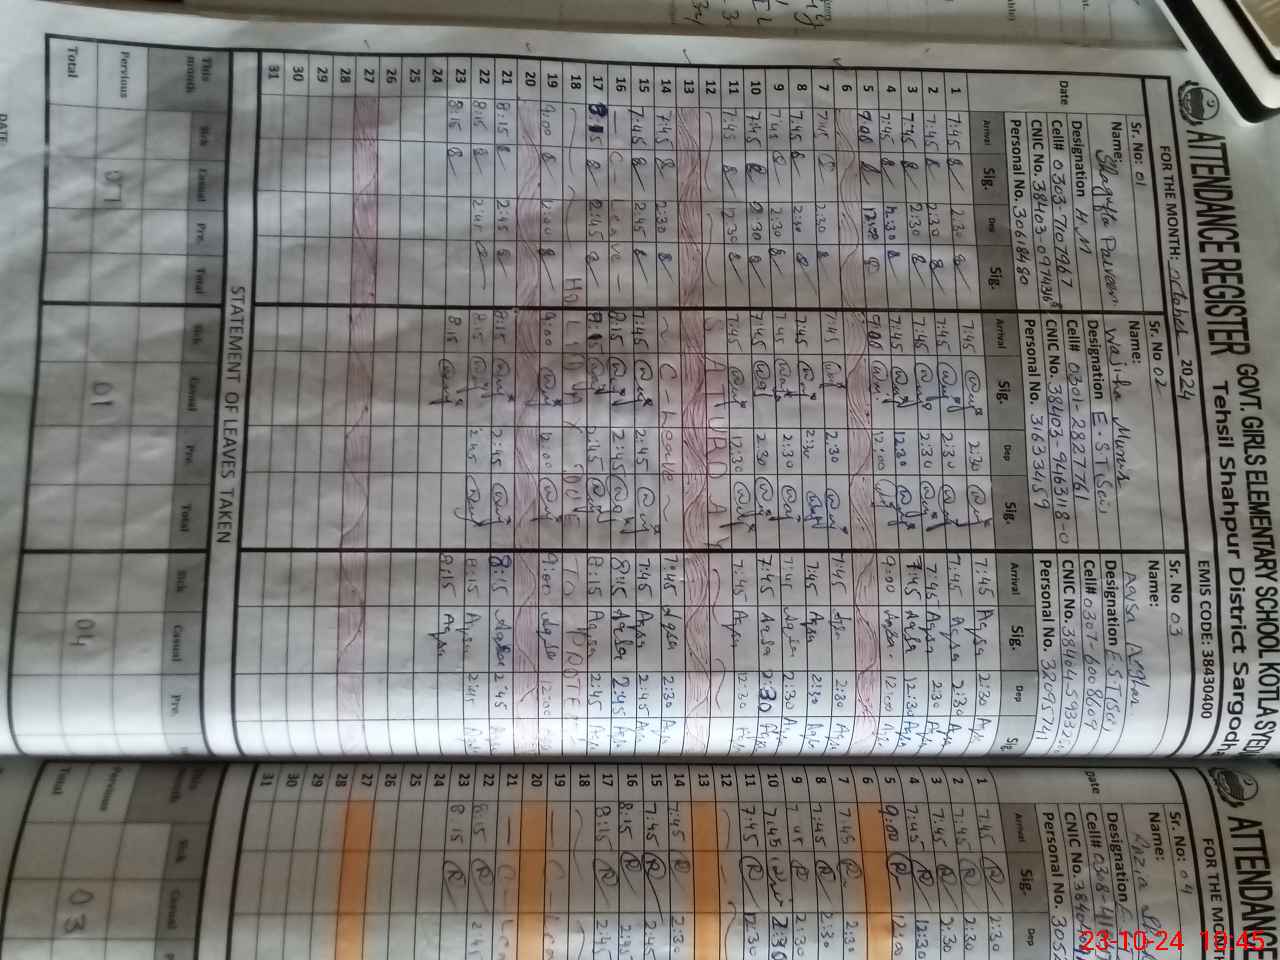 ATTENDANCE REGISTER GOVT. GIRLS ELEMENTARY SCHOOL KOTLA SYED
Tehsil Shahpur District Sargodh
FOR THE MONTH: 2024
EMIS CODE: 38430400
Sr. No: 01
Name: Shagufta Parveen
Designation H.M
Cell# 0303-7107967
CNIC No. 38403-0974316
Personal No. 30618480
Sr. No 02
Name: Wajiha
Designation E.S.T(Sci)
Cell# 0301-2827761
CNIC No. 38403-9463118-0
Personal No. 31633459
Sr. No 03
Name: Aqsa Asghar
Designation E.S.T(Sci)
Cell# 0307-6008609
CNIC No. 38404-59332
Personal No. 32095741
Date Arrival Sig. Dep Sig. Arrival Sig. Dep Sig. Arrival Sig. Dep Sig
1 7:45 2:30 7:45 2:30 7:45 Aqsa 2:30 Aqsa
2 7:45 2:30 7:45 2:30 7:45 Aqsa 2:30 Aqsa
3 7:45 2:30 7:45 2:30 7:45 Aqsa 2:30 Aqsa
4 7:45 12:30 7:45 12:30 7:45 Aqsa 12:30 Aqsa
5 9:00 12:00 9:00 12:00 9:00 Aqsa 12:00 Aqsa
6
7 7:45 2:30 7:45 2:30 7:45 Aqsa 2:30 Aqsa
8 7:45 2:30 7:45 2:30 7:45 Aqsa 2:30 Aqsa
9 7:45 2:30 7:45 2:30 7:45 Aqsa 2:30 Aqsa
10 7:45 2:30 7:45 2:30 7:45 Aqsa 2:30 Aqsa
11 7:45 12:30 7:45 12:30 7:45 Aqsa 12:30 Aqsa
12 SATURDAY
13
14 7:45 2:30 C-Leave 7:45 Aqsa 2:30 Aqsa
15 7:45 2:45 7:45 2:45 7:45 Aqsa 2:45 Aqsa
16 C-Leave 8:15 2:45 8:15 Aqsa 2:45 Aqsa
17 8:15 2:45 8:15 2:45 8:15 Aqsa 2:45 Aqsa
18 HOLIDAY DUE TO
19 9:00 12:00 9:00 12:00 9:00 Aqsa 12:00
20
21 8:15 2:45 8:15 2:45 8:15 Aqsa 2:45
22 8:15 2:45 8:15 2:45 8:15 Aqsa 2:45
23 8:15 8:15 8:15 Aqsa
24
25
26
27
28
29
30
31
STATEMENT OF LEAVES TAKEN
This month Sick Casual Pre. Total Sick Casual Pre. Total Sick Casual Pre.
Pervious 01 01 04
Total
DATE
ATTENDANCE
FOR THE MONT
Sr. No: 04
Name:
Designation E
Cell# 0308-41
CNIC No. 3840
Personal No. 305
Date Arrival Sig. Dep
1 7:45 2:30
2 7:45 2:30
3 7:45 2:30
4 7:45 12:30
5 9:00 12:00
6
7 7:45 2:30
8 7:45 2:30
9 7:45 2:30
10 7:45 2:30
11 7:45 12:30
12
13
14 7:45 2:30
15 7:45 2:45
16 8:15 2:45
17 8:15 2:45
18
19
20
21
22 8:15 2:45
23 8:15
24
25
26
27
28
29
30
31
This month Sick Casual
Pervious 03
Total
23-10-24 10:45